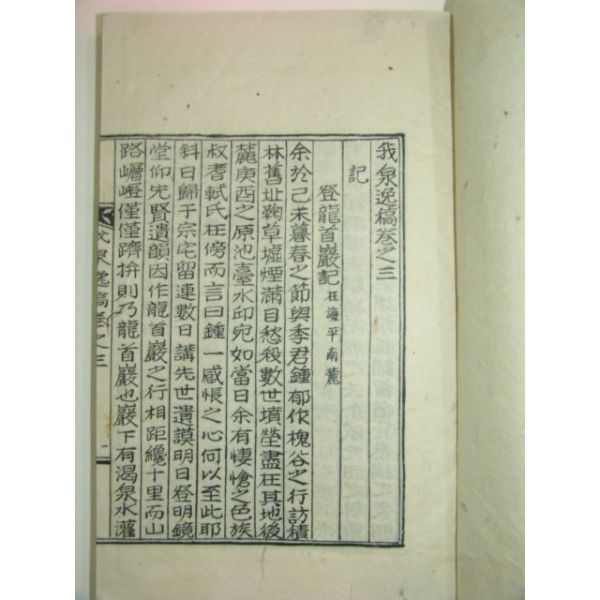 我泉逸稿卷之三
記
登龍首巖記 在海平南麓
余於己未暮春之節與季君鍾郁作槐谷之行訪積
林舊址鞠草墟煙滿目愁殺數世墳塋盡在其地後
麓庚酉之原池臺水印宛如當日余有悽愴之色族
叔耆軾氏在傍而言曰鍾一感悵之心何以至此耶
斜日歸于宗宅留連數日講先世遺謨明日登明鏡
堂仰先賢遺韻因作龍首巖之行相距纔十里而山
路嶒嶝僅僅躋拚則乃龍首巖也巖下有渴泉水灌
我泉逸稿卷之三
一